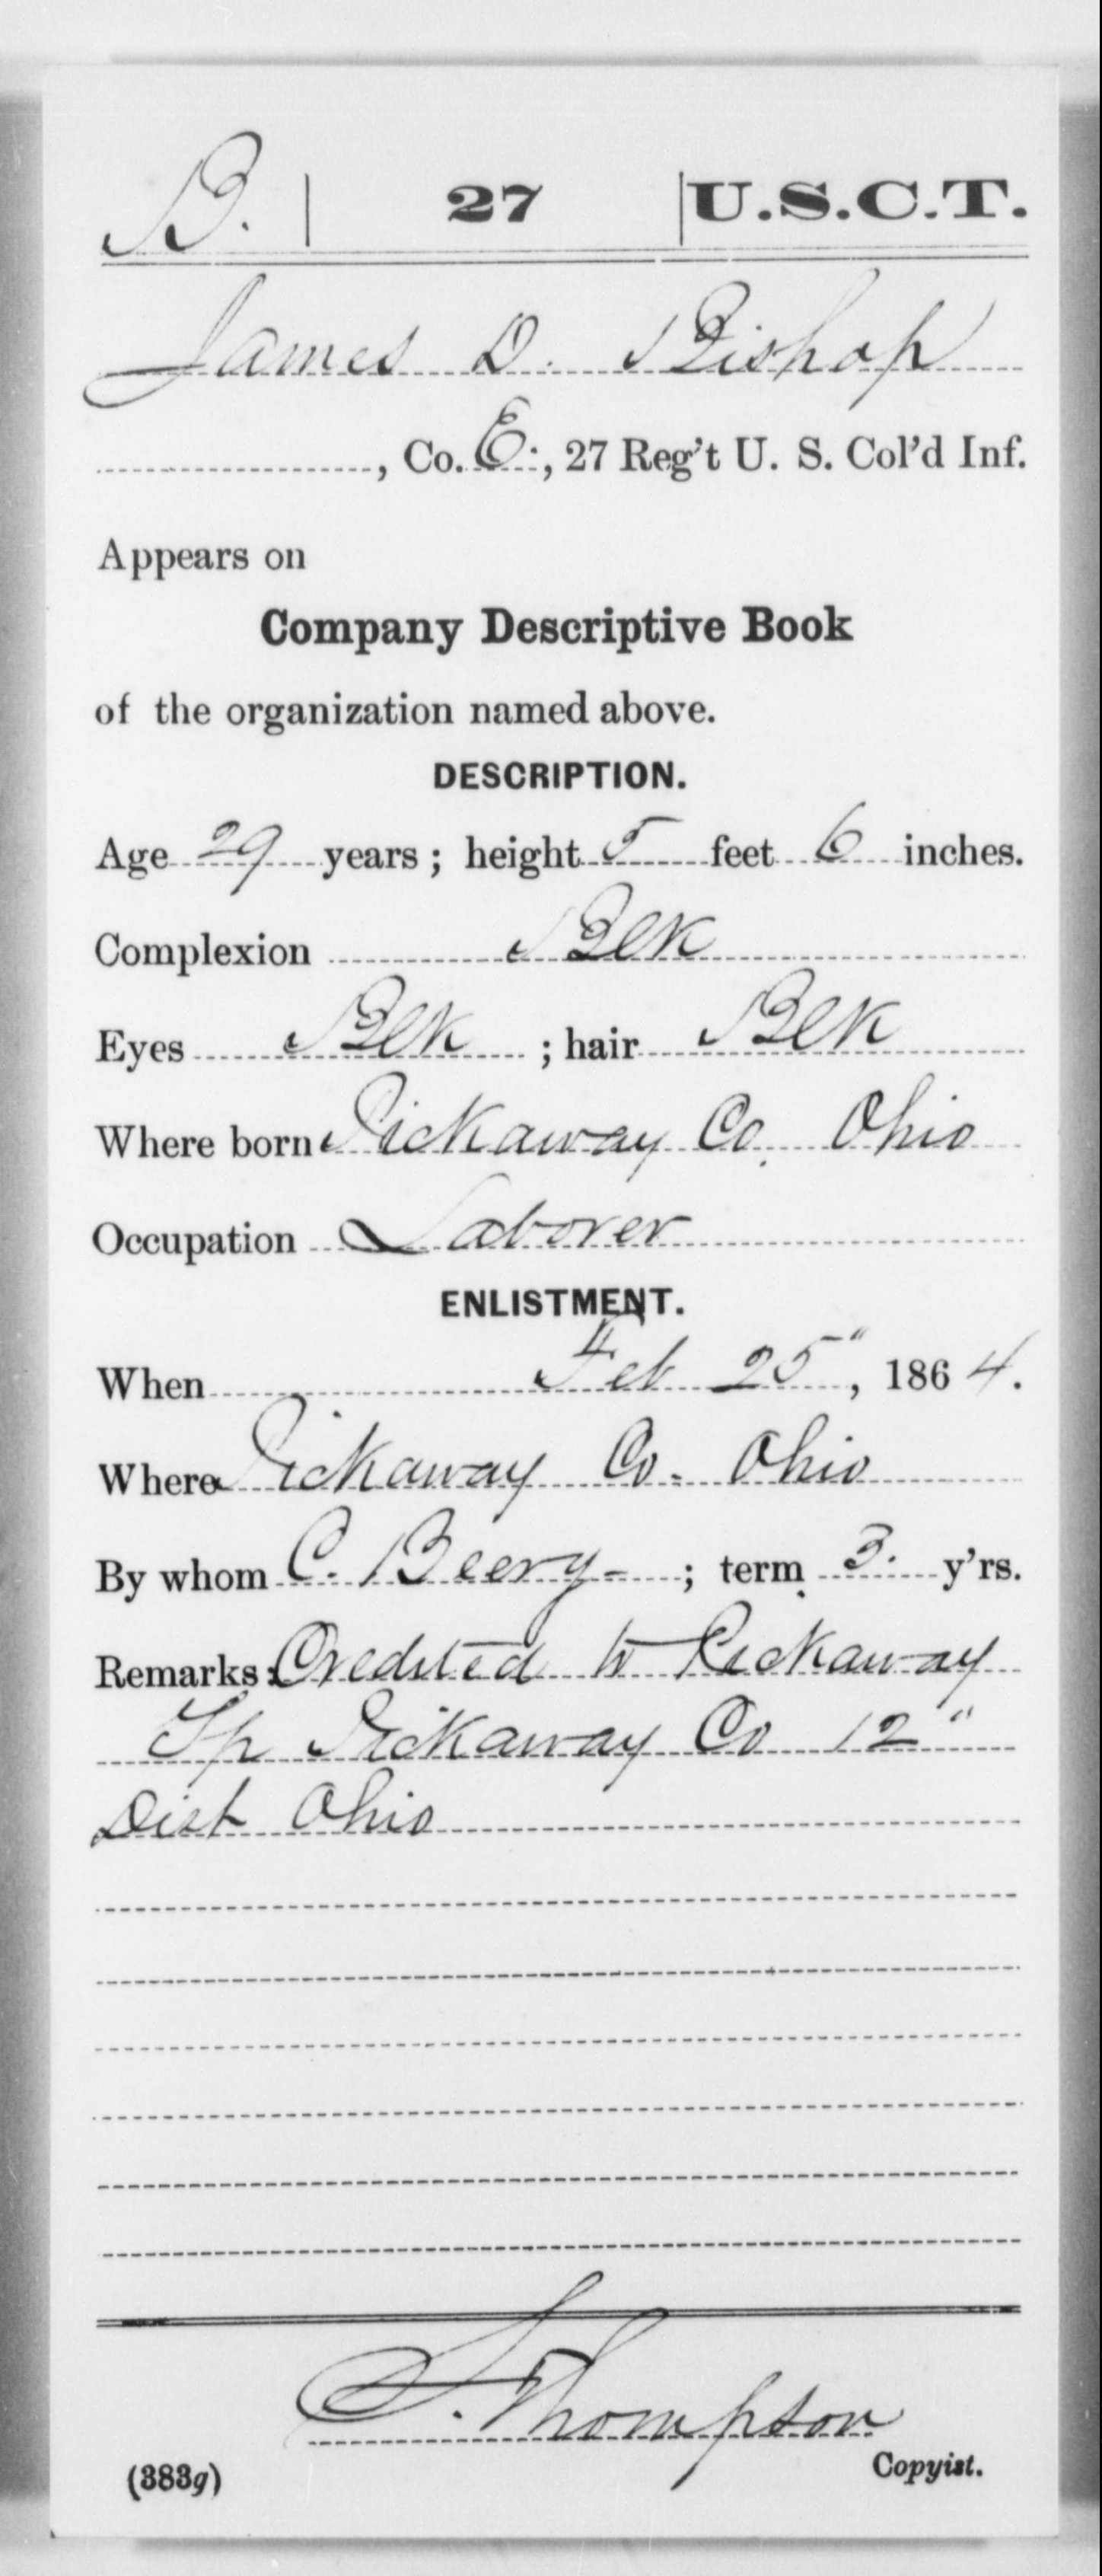 B. | 27 | U.S.C.T.
James D. Bishop
, Co. E., 27 Reg't U. S. Col'd Inf.
Appears on
Company Descriptive Book
of the organization named above.
DESCRIPTION.
Age 29 years; height 5 feet 6 inches.
Complexion Blk
Eyes Blk ; hair Blk
Where born Pickaway Co. Ohio
Occupation Laborer
ENLISTMENT.
When Feb 25", 1864.
Where Pickaway Co. Ohio
By whom C. Beery ; term 3. y'rs.
Remarks: Credited to Pickaway
Tp Pickaway Co 12"
Dist Ohio
S. Thompson
(383g) Copyist.